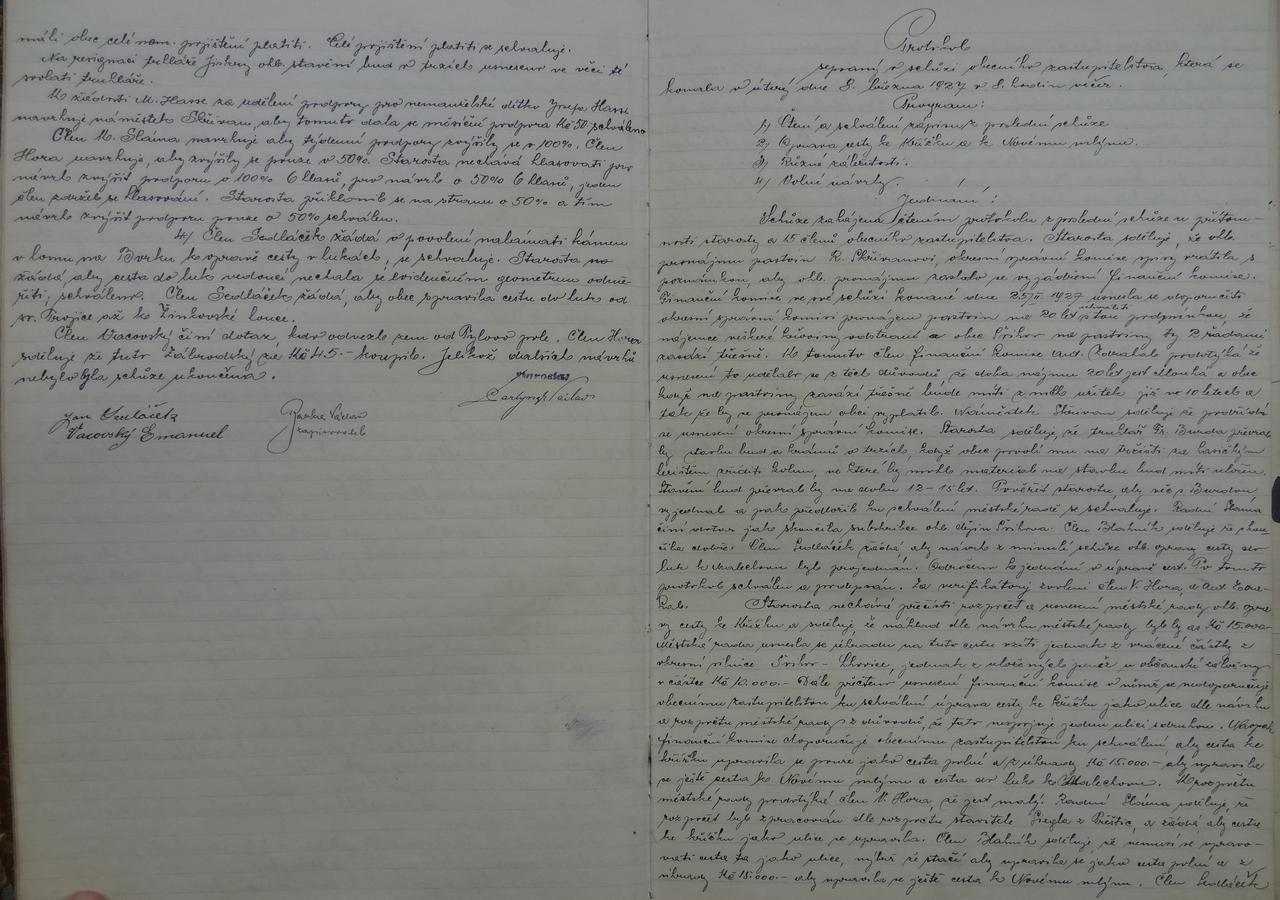 máli obec celé nem. pojištění platiti. Celé pojištění platiti se schvaluje.
Na resignaci truhláře Jiskry ohl. stavění bud v trzích usneseno ve věci té
svolati truhláře.
K žádosti M. Hasse za udělení podpory pro nemanželské dítko Josefa Hasse
navrhuje náměstek Skřivan, aby tomuto dala se měsíční podpora Kč 50 schváleno
Člen M. Sláma navrhuje aby týdenní podpory zvýšily se o 100%. Člen
Hora navrhuje, aby zvýšily se pouze o 50%. Starosta nechává hlasovati pro
návrh zvýšit podporu o 100% 6 hlasů, pro návrh o 50% 6 hlasů, jeden
člen zdržel se hlasování. Starosta přiklonil se na stranu o 50% a tím
návrh zvýšit podporu pouze o 50% schválen.
4/ Člen Sedláček žádá o povolení nalámati kámen
v lomu na Borku k opravě cesty v lukách, se schvaluje. Starosta
žádá, aby cesta do luk vedoucí nechala se evidenčním geometrem odmě-
řiti, schváleno. Člen Sedláček žádá, aby obec spravila cestu do luk od
sv. Trojice až k Žinkovské louce.
Člen Vacovský činí dotaz, kdo odvezl zem od Pýlovo pole. Člen Hora
sděluje že tuto Zábrodský za Kč 45.- koupil. Jelikož dalších návrhů
nebylo byla schůze ukončena.
Starosta:
Jan Sedláček
Vacovský Emanuel
zapisovatel
Protokol
sepsaný o schůzi obecního zastupitelstva, která se
konala v úterý dne 8. března 1927 v 8 hodin večer.
Program:
1/ Čtení a schválení zápisu z poslední schůze
2/ Oprava cesty ke Křížku a k Novému mlýnu.
3/ Různé záležitosti.
4/ Volné návrhy.
Jednání:
Schůze zahájena čtením protokolu z poslední schůze za přítom-
nosti starosty a 15 členů obecního zastupitelstva. Starosta sděluje, že ohl.
pronájmu pastvin R. Skřivanovi, okresní správní komise spisy vrátila s
poznámkou, aby ohl. pronájmu zaslalo se vyjádření finanční komise.
Finanční komise ve své schůzi konané dne 25/II 1927 usnesla se doporučiti
okresní správní komisi pronájem pastvin na 20 let schváliti s tou podmínkou, že
nájemce veškeré křoviny odstraní a obec Přikos na pastviny ty 2 řadami
zasází třešně. K tomuto člen finanční komise Ant. Zoubalo podotýká že
usnesení to udělalo se z těch důvodů, že doba nájmu 20 let jest dlouhá a obec
když na pastviny zasází třešně bude míti z nich užitek již ve 10 letech a
tak že by se pronájem obci vyplatil. Náměstek Skřivan sděluje že podřídí
se usnesení okresní správní komise. Starosta sděluje, že truhlář Fr. Burda převzal
by stavbu bud a krámů o trzích, když obec povolí mu na tržišti za hasičským
lezištěm zříditi kolnu, ve které by mohl material na stavbu bud míti uložen.
Stavění bud převzal by na dobu 12-15 let. Pověřit starostu, aby věc s Burdou
vyjednal a pak předložil ku schválení městské radě se schvaluje. Radní Sláma
činí dotaz jak skončila subskribce ohl. dějin Přikosu. Člen Blahník sděluje že skon-
čila dobře. Člen Sedláček žádá, aby návrh z minulé schůze ohl. opravy cesty do
luk k Malechovu byl projednán. Odročeno k jednání o úpravě cest. Po tomto
protokol schválen a podepsán. Za verifikátory zvoleni člen V. Hora, a Ant. Zou-
bal. Starosta nechává přečísti rozpočet a usnesení městské rady ohl. opra-
vy cesty ke Křížku a sděluje, že náklad dle návrhu městské rady byl by as Kč 15.000.-
Městská rada usnesla se úhradu na tuto cestu vzíti jednak z vrácené částky z
okresní silnice Přikos - Lhovice, jednak z uložených peněz u občanské záložny
v částce Kč 10.000.- Dále přečteno usnesení finanční komise v němž se nedoporučuje
obecnímu zastupitelstvu ku schválení úprava cesty ke Křížku jako ulice dle návrhu
a rozpočtu městské rady z důvodů, že tato nespojuje jednu ulici s druhou. Naopak
finanční komise doporučuje obecnímu zastupitelstvu ku schválení, aby cesta ke
křížku upravila se pouze jako cesta polní a z úhrady Kč 15.000.- aby upravila
se ještě cesta k Novému mlýnu a cesta do luk k Malechovu. K rozpočtu
městské rady podotýká člen V. Hora, že jest malý. Radní Sláma sděluje, že
rozpočet byl zpracován dle rozpočtu stavitele Siegla z Přeštic, a žádá, aby cesta
ke křížku jako ulice se upravila. Člen Blahník sděluje, že nemusí se upravo-
vati cesta ta jako ulice, nýbrž že stačí aby upravila se jako cesta polní a z
úhrady Kč 15.000.- aby upravila se ještě cesta k Novému mlýnu. Člen Sedláček